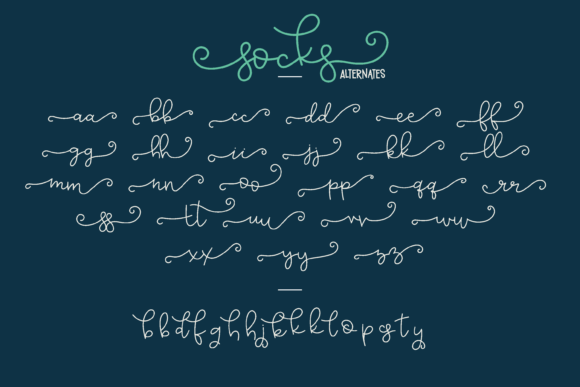 socks
ALTERNATES
aa bb cc dd ee ff
gg hh ii jj kk ll
mm nn oo pp qq rr
ss tt uu vv ww
xx yy zz
bbdfghhjkkklopsty